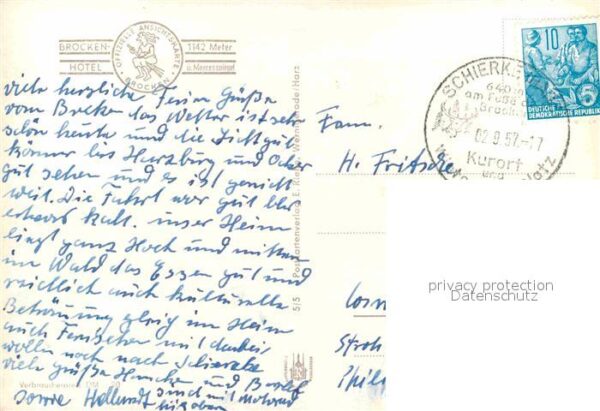 BROCKEN-
HOTEL
OFFIZIELLE ANSICHTSKARTE
BROCKEN
1142 Meter
ü. Meeresspiegel
viele herzliche Ferien Grüße
vom Brocken das Wetter ist sehr
schön heute und die Sicht gut
können bis Harzburg und Ocker
gut sehen und es ist genist
weit. Die Fahrt war gut aber
etwas kalt. unser Heim
liegt ganz Hoch und mitten
im Wald das Essen gut und
reichlich auch kulturelle
Betreuung gleich im Heim
auch Fernseher mit dabei
wollen noch nach Schierke
viele Grüße und
sowie Hellmut sind mit Motorrad
hir oben
Verbraucherpreis DM
5/5 Postkartenverlag E. Wernigerode/Harz
SCHIERKE
640 m
am Fuße d
Brock
02.9.57.-17
Kurort
und
platz
10
DEUTSCHE
DEMOKRATISCHE REPUBLIK
Fam.
H. Fritsche
privacy protection
Datenschutz
Stroh